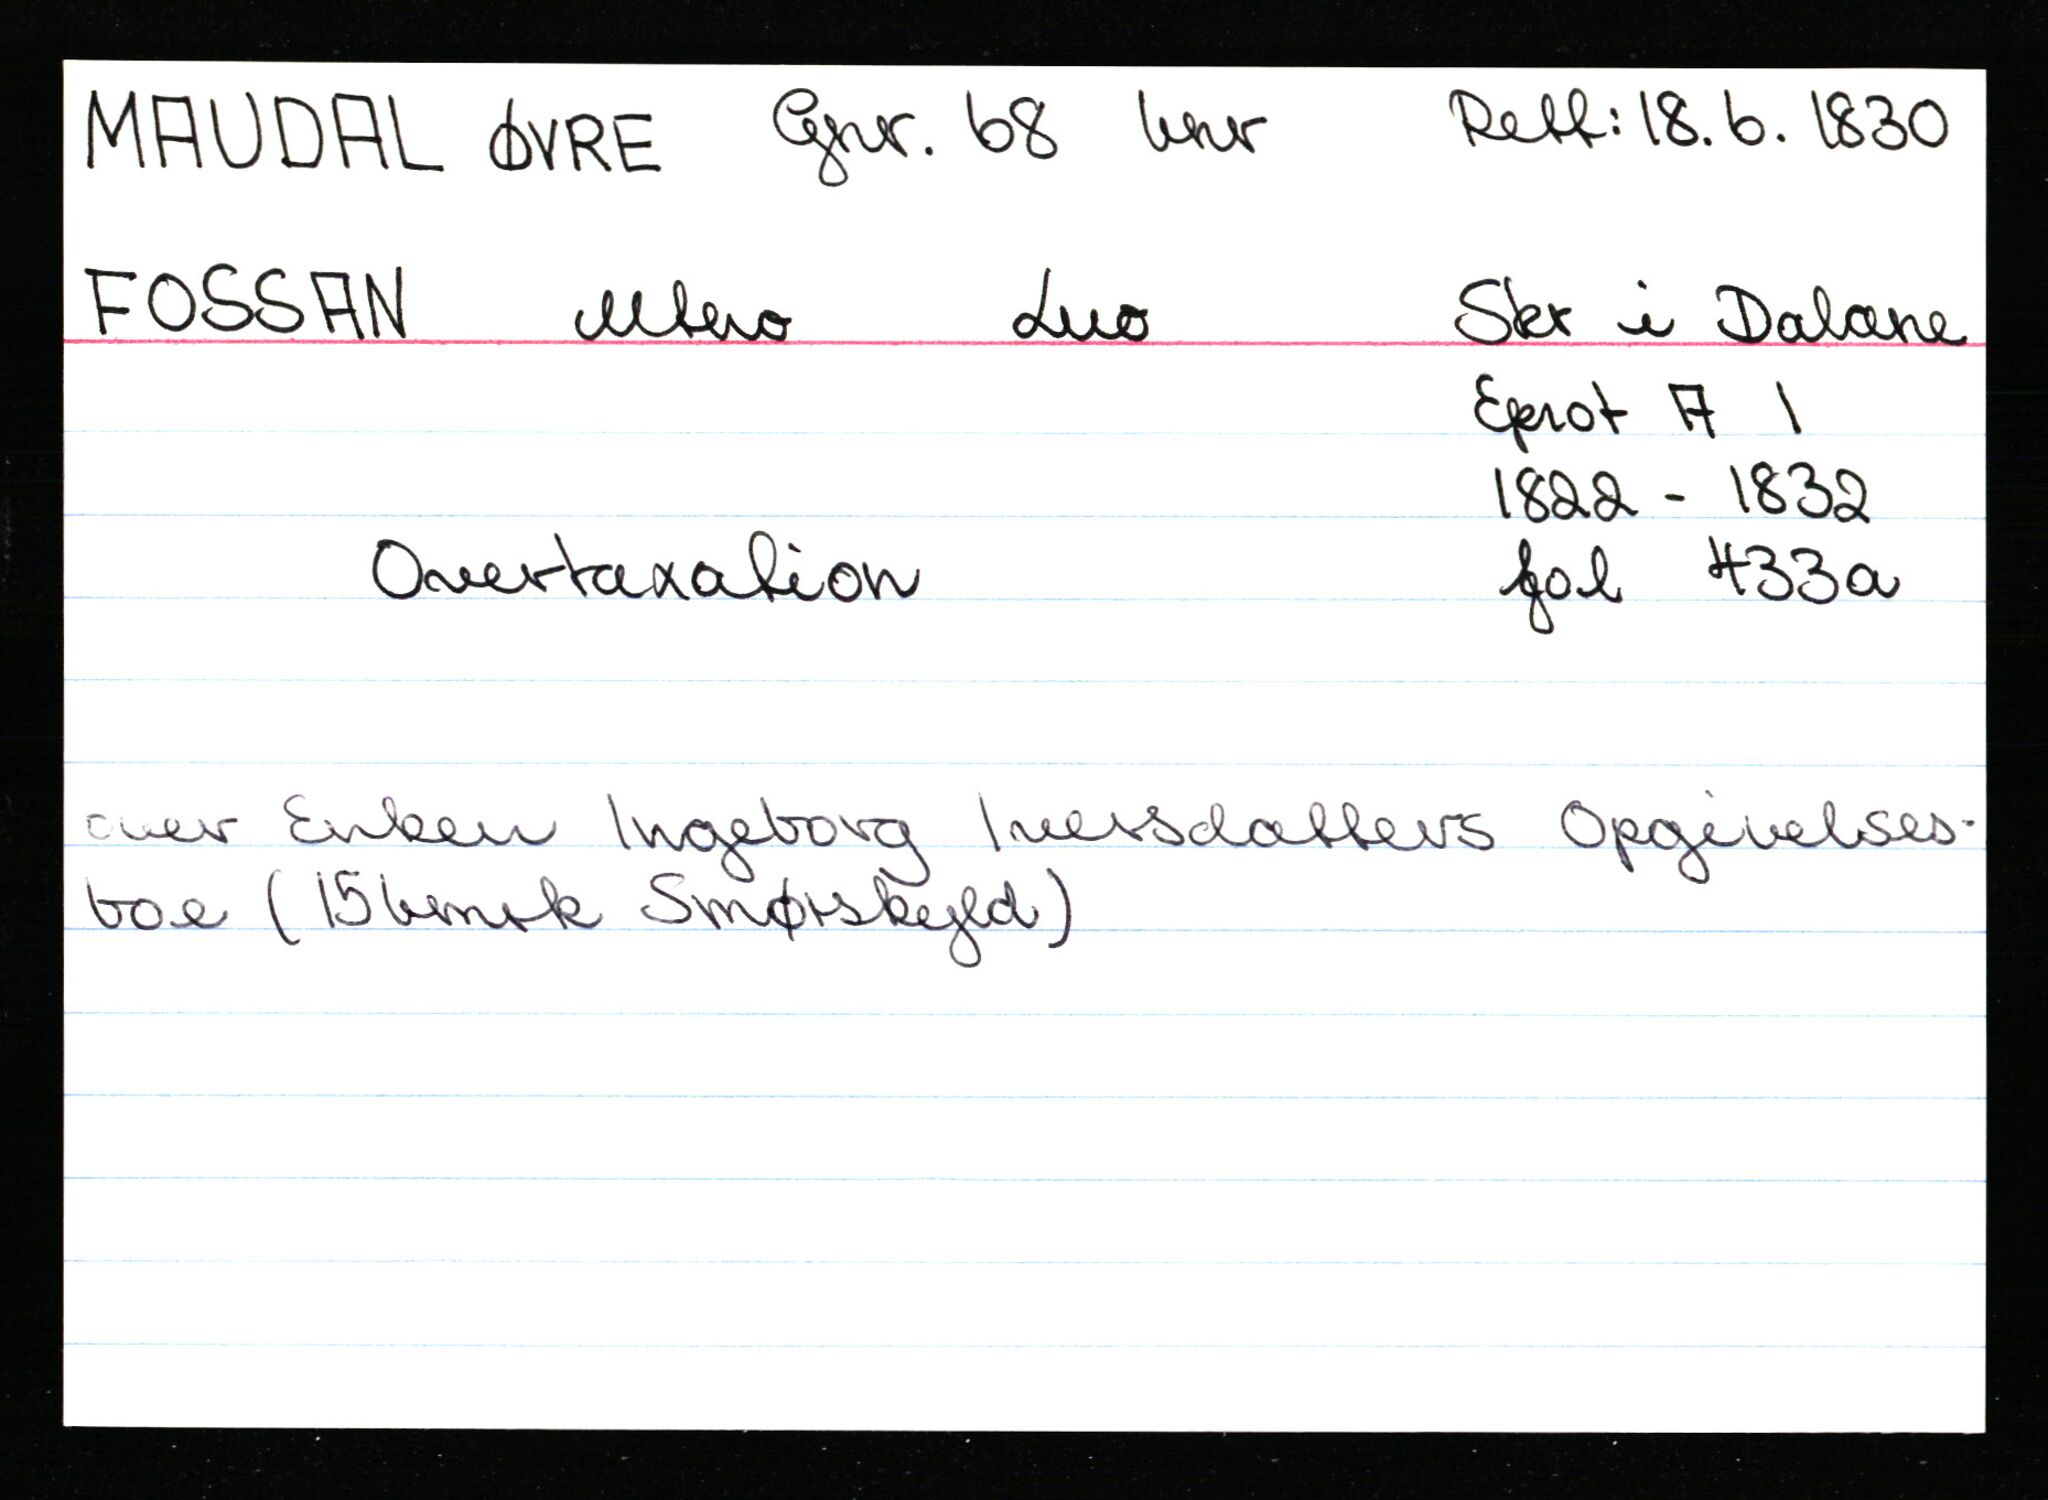 MAUDAL ØVRE Gnr. 68 bnr Rett: 18. 6. 1830
FOSSAN Mtrno Lno Skr i Dalane
Eprot A 1
1822 - 1832
Overtaxation fol 433a
over Enken Ingeborg Iversdatters Opgivelses-
boe (15 bmrk Smørskyld)